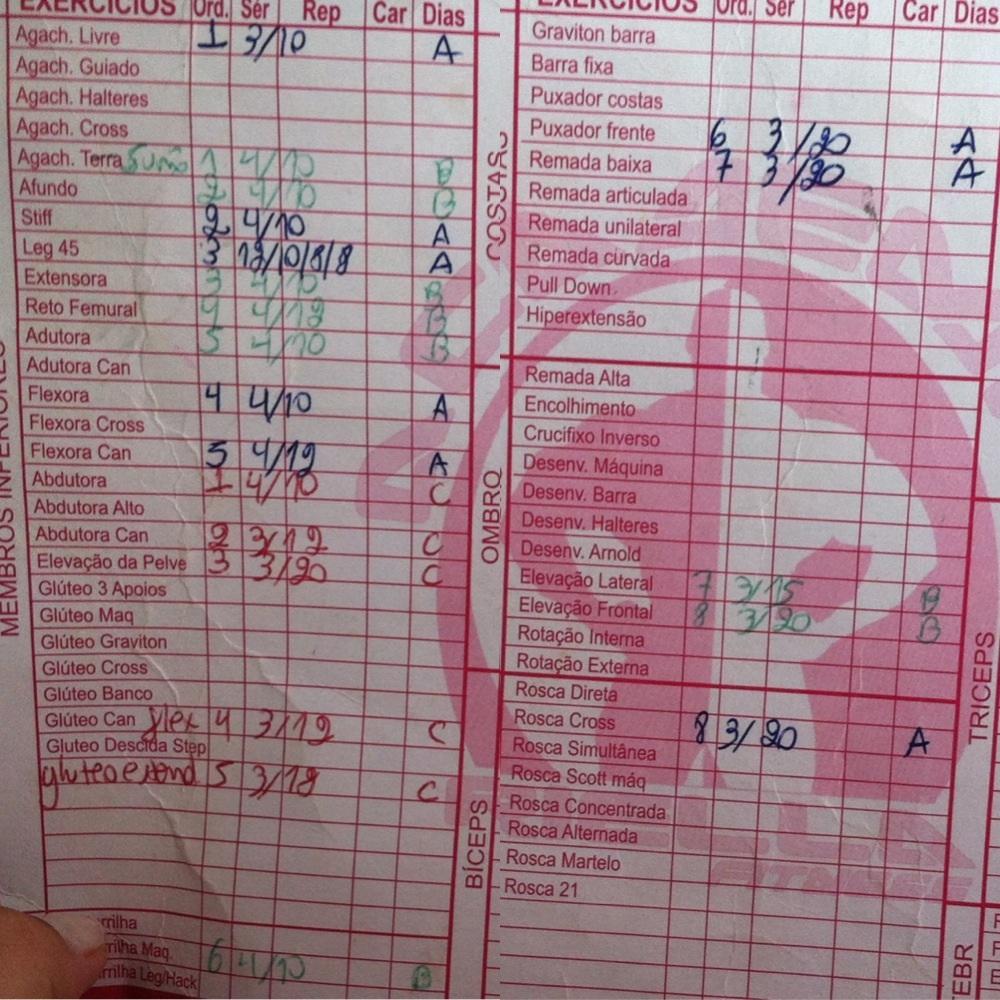 EXERCÍCIOS Ord. Sér Rep Car Dias
Agach. Livre 1 3/10 A
Agach. Guiado
Agach. Halteres
Agach. Cross
Agach. Terra Sumô 1 4/10 B
Afundo 2 4/10 B
Stiff 2 4/10 A
Leg 45 3 12/10/8/8 A
Extensora 3 4/10 B
Reto Femural 4 4/12 B
Adutora 5 4/10 B
Adutora Can
Flexora 4 4/10 A
Flexora Cross
Flexora Can 5 4/12 A
Abdutora 1 4/10 C
Abdutora Alto
Abdutora Can 2 3/12 C
Elevação da Pelve 3 3/20 C
Glúteo 3 Apoios
Glúteo Maq
Glúteo Graviton
Glúteo Cross
Glúteo Banco
Glúteo Can flex 4 3/12 C
Gluteo Descida Step
gluteo extend 5 3/12 C
rrilha
rrilha Maq. 6 4/10 B
rrilha Leg/Hack
MEMBROS INFERIORES
EXERCÍCIOS Ord. Sér Rep Car Dias
COSTAS
Graviton barra
Barra fixa
Puxador costas
Puxador frente 6 3/20 A
Remada baixa 7 3/20 A
Remada articulada
Remada unilateral
Remada curvada
Pull Down
Hiperextensão
OMBRO
Remada Alta
Encolhimento
Crucifixo Inverso
Desenv. Máquina
Desenv. Barra
Desenv. Halteres
Desenv. Arnold
Elevação Lateral 7 3/15 B
Elevação Frontal 8 3/20 B
Rotação Interna
Rotação Externa
BÍCEPS
Rosca Direta
Rosca Cross 8 3/20 A
Rosca Simultânea
Rosca Scott máq
Rosca Concentrada
Rosca Alternada
Rosca Martelo
Rosca 21
TRICEPS
FITNESS